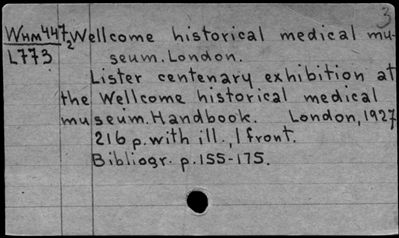 3
WHM447,2 Wellcome historical medical mu-
L773 seum. London.
Lister centenary exhibition at
the Wellcome historical medical
museum. Handbook. London, 1927
216 p. with ill., 1 front.
Bibliogr. p. 155-175.